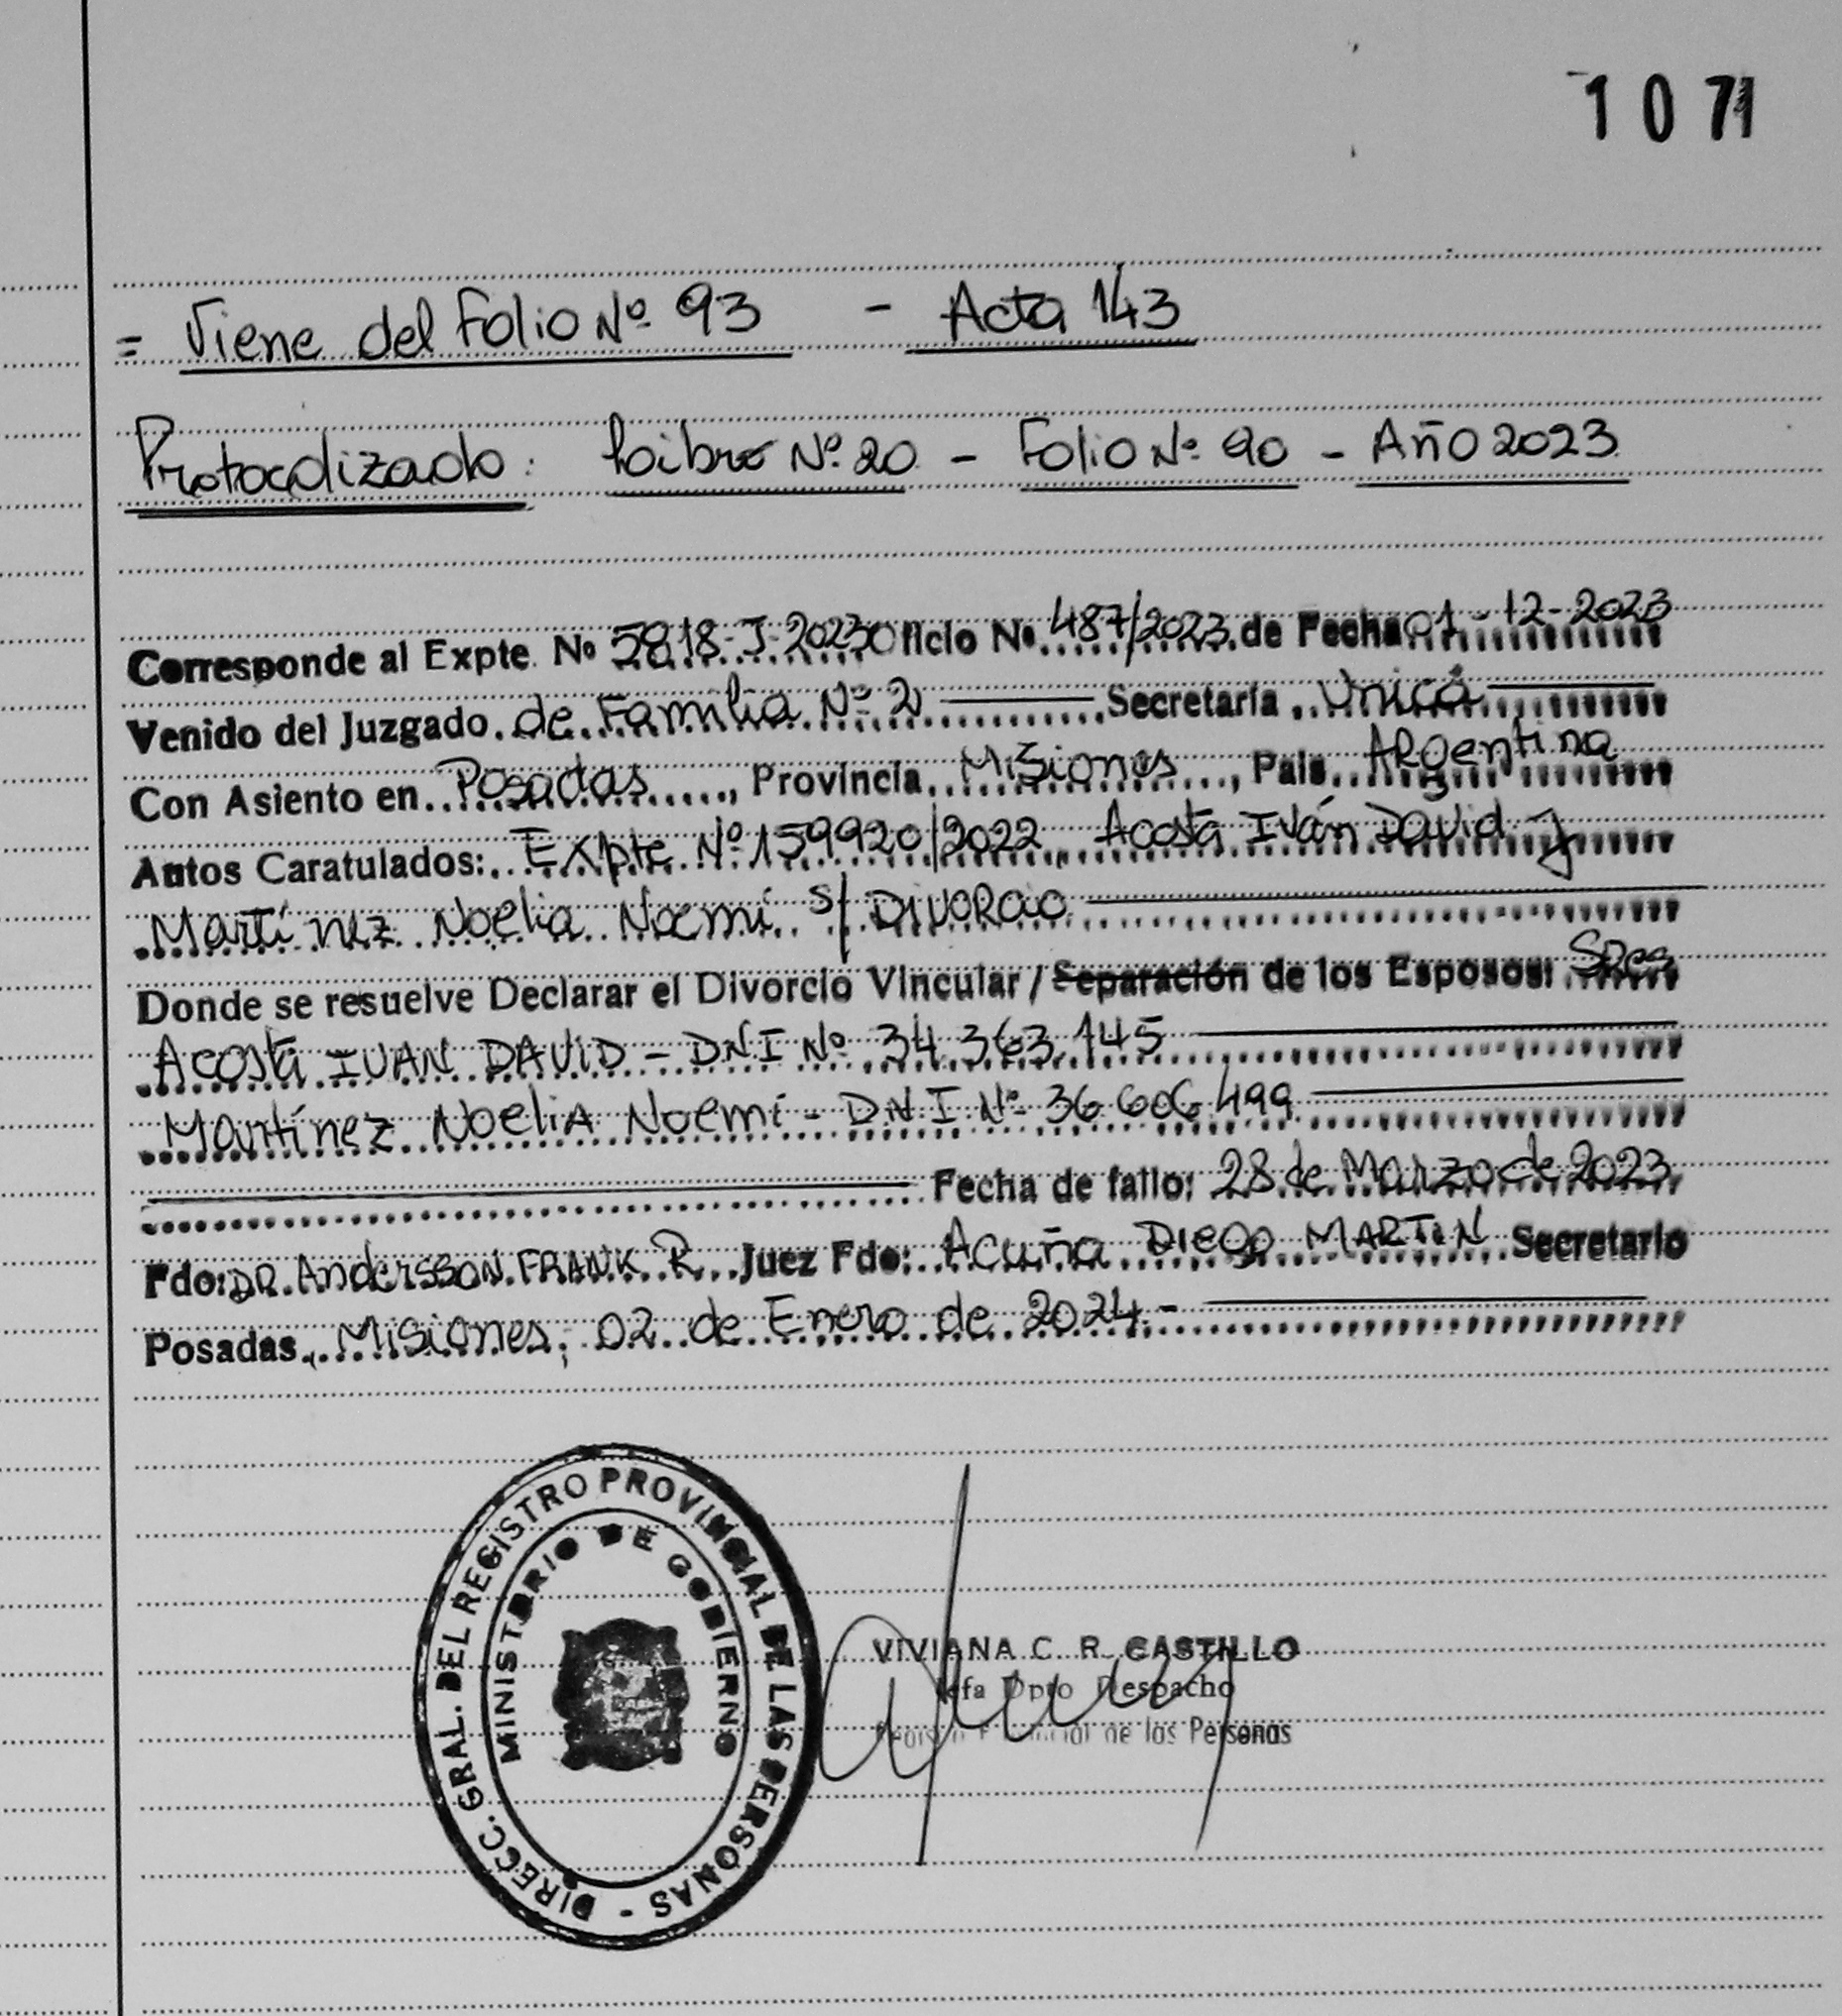 107
= Viene del Folio Nº 93 - Acta 143
Protocolizado: Libro Nº 20 - Folio Nº 90 - Año 2023
Corresponde al Expte. Nº 5818-J-2023 Oficio Nº 487/2023 de Fecha 01-12-2023
Venido del Juzgado de Familia Nº 2 Secretaría Única
Con Asiento en Posadas, Provincia Misiones, País Argentina
Autos Caratulados: Expte Nº 159920/2022 Acosta Iván David y
Martínez Noelia Noemí s/ DIVORCIO
Donde se resuelve Declarar el Divorcio Vincular / Separación de los Esposos: Sres
Acosta IVAN DAVID - DNI Nº 34.363.145
Martínez Noelia Noemí - D.N.I Nº 36.606.499
Fecha de fallo: 28 de Marzo de 2023
Fdo: DR. Andersson FRANK R. Juez Fdo: Acuña Diego MARTIN Secretario
Posadas, Misiones, 02 de Enero de 2024.-
DIRECC. GRAL. DEL REGISTRO PROVINCIAL DE LAS PERSONAS -
MINISTERIO DE GOBIERNO
VIVIANA C. R. CASTILLO
Jefa Dpto Despacho
de las Personas